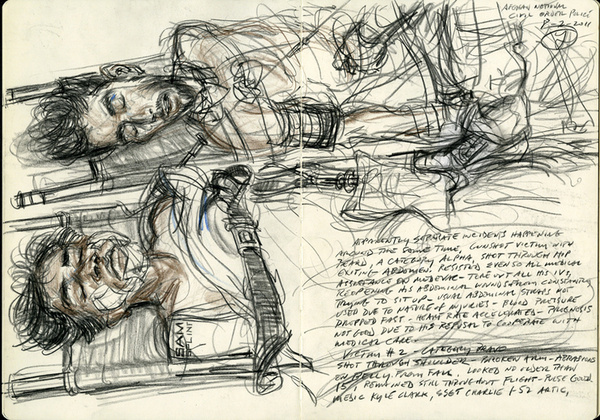 AFGHAN NATIONAL
CIVIL ORDER POLICE
8-2-2011
SAM
SPLINT
APPARENTLY SEPARATE INCIDENTS HAPPENING
AROUND THE SAME TIME, GUNSHOT VICTIM WITH
BEARD A CATEGORY ALPHA, SHOT THROUGH HIP
EXITING ABDOMEN. RESISTED EVEN SOME MEDICAL
ASSISTANCE ON MEDEVAC - TORE OUT ALL HIS IVS,
REOPENING HIS ABDOMINAL WOUNDS FROM CONSTANTLY
TRYING TO SIT UP - USUAL ABDOMINAL STRAPS NOT
USED DUE TO NATURE OF INJURIES - BLOOD PRESSURE
DROPPED FAST - HEART RATE ACCELERATED - PROGNOSIS
NOT GOOD DUE TO HIS REFUSAL TO COOPERATE WITH
MEDICAL CARE.
VICTIM #2 - CATEGORY BRAVO
SHOT THROUGH SHOULDER - BROKEN ARM - ABRASIONS
ON BELLY FROM FALL. LOOKED NO OLDER THAN
15, REMAINED STILL THROUGHOUT FLIGHT - PULSE GOOD.
MEDIC KYLE CLARK, SSGT CHARLIE 1-52 ARTIC,